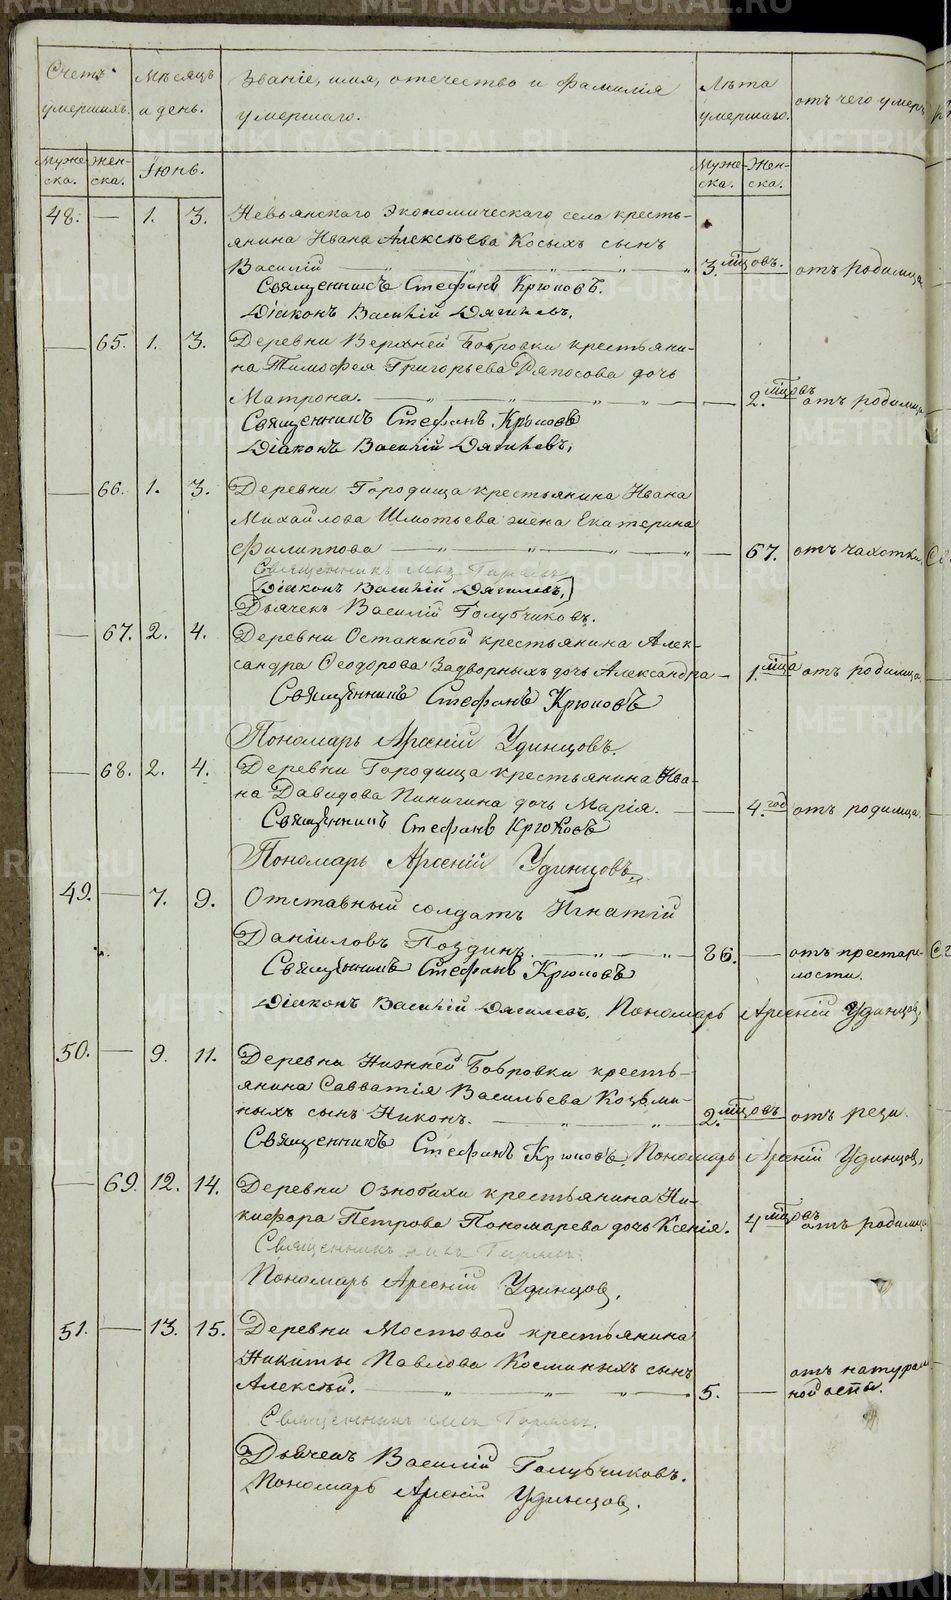 Счетъ умершихъ. Мѣсяцъ и день. Званіе, имя, отечество и фамилія умершаго. Лѣта умершаго. отъ чего умеръ
Муже-ска. Жен-ска. Іюнь. Муже-ска. Жен-ска.
48. — 1. 3. Невьянскаго Экономическаго села кресть-
янина Ивана Алексѣева Косыхъ сынъ
Василій — 3. мцовъ. отъ родимца.
Священникъ Стефанъ Крюковъ.
Діаконъ Василій Дягилевъ.
— 65. 1. 3. Деревни Верхней Бобровки крестьяни-
на Тимофея Григорьева Ряпосова дочь
Матрона. — 2. мцовъ отъ родимца
Священникъ Стефанъ Крюковъ
Діаконъ Василій Дягилевъ.
— 66. 1. 3. Деревни Городища крестьянина Ивана
Михайлова Шмотьева жена Екатерина
Филиппова — 67. отъ чахотки
Священникъ
Діаконъ Василій Дягилевъ.
Дьячекъ Василій Голубчиковъ.
— 67. 2. 4. Деревни Останиной крестьянина Алек-
сандра Ѳеодорова Задворныхъ дочь Александра — 1. мца отъ родимца.
Священникъ Стефанъ Крюковъ
Пономарь Арсеній Удинцовъ.
— 68. 2. 4. Деревни Городища крестьянина Ива-
на Давидова Пинигина дочь Марія. — 4. год отъ родимца.
Священникъ Стефанъ Крюковъ
Пономарь Арсеній Удинцовъ
49. — 7. 9. Отставный солдатъ Игнатій
Даніиловъ Поздинъ — 86. — отъ престаре-
лости.
Священникъ Стефанъ Крюковъ
Діаконъ Василій Дягилевъ. Пономарь Арсеній Удинцовъ
50. — 9. 11. Деревни Нижней Бобровки кресть-
янина Савватія Васильева Козьми-
ныхъ сынъ Никонъ. — 2. мцовъ отъ рези.
Священникъ Стефанъ Крюковъ. Пономарь Арсеній Удинцовъ
— 69. 12. 14. Деревни Ознобихи крестьянина Ни-
кифора Петрова Пономарева дочь Ксенія. 4 мцовъ отъ родимца
Священникъ
Пономарь Арсеній Удинцов.
51. — 13. 15. Деревни Мостовой крестьянина
Никиты Павлова Косминыхъ сынъ
Алексѣй. — 5. — отъ натураль-
ной оспы.
Священникъ
Дьячекъ Василій Голубчиковъ.
Пономарь Арсеній Удинцов.
METRIKI.GASO-URAL.RU